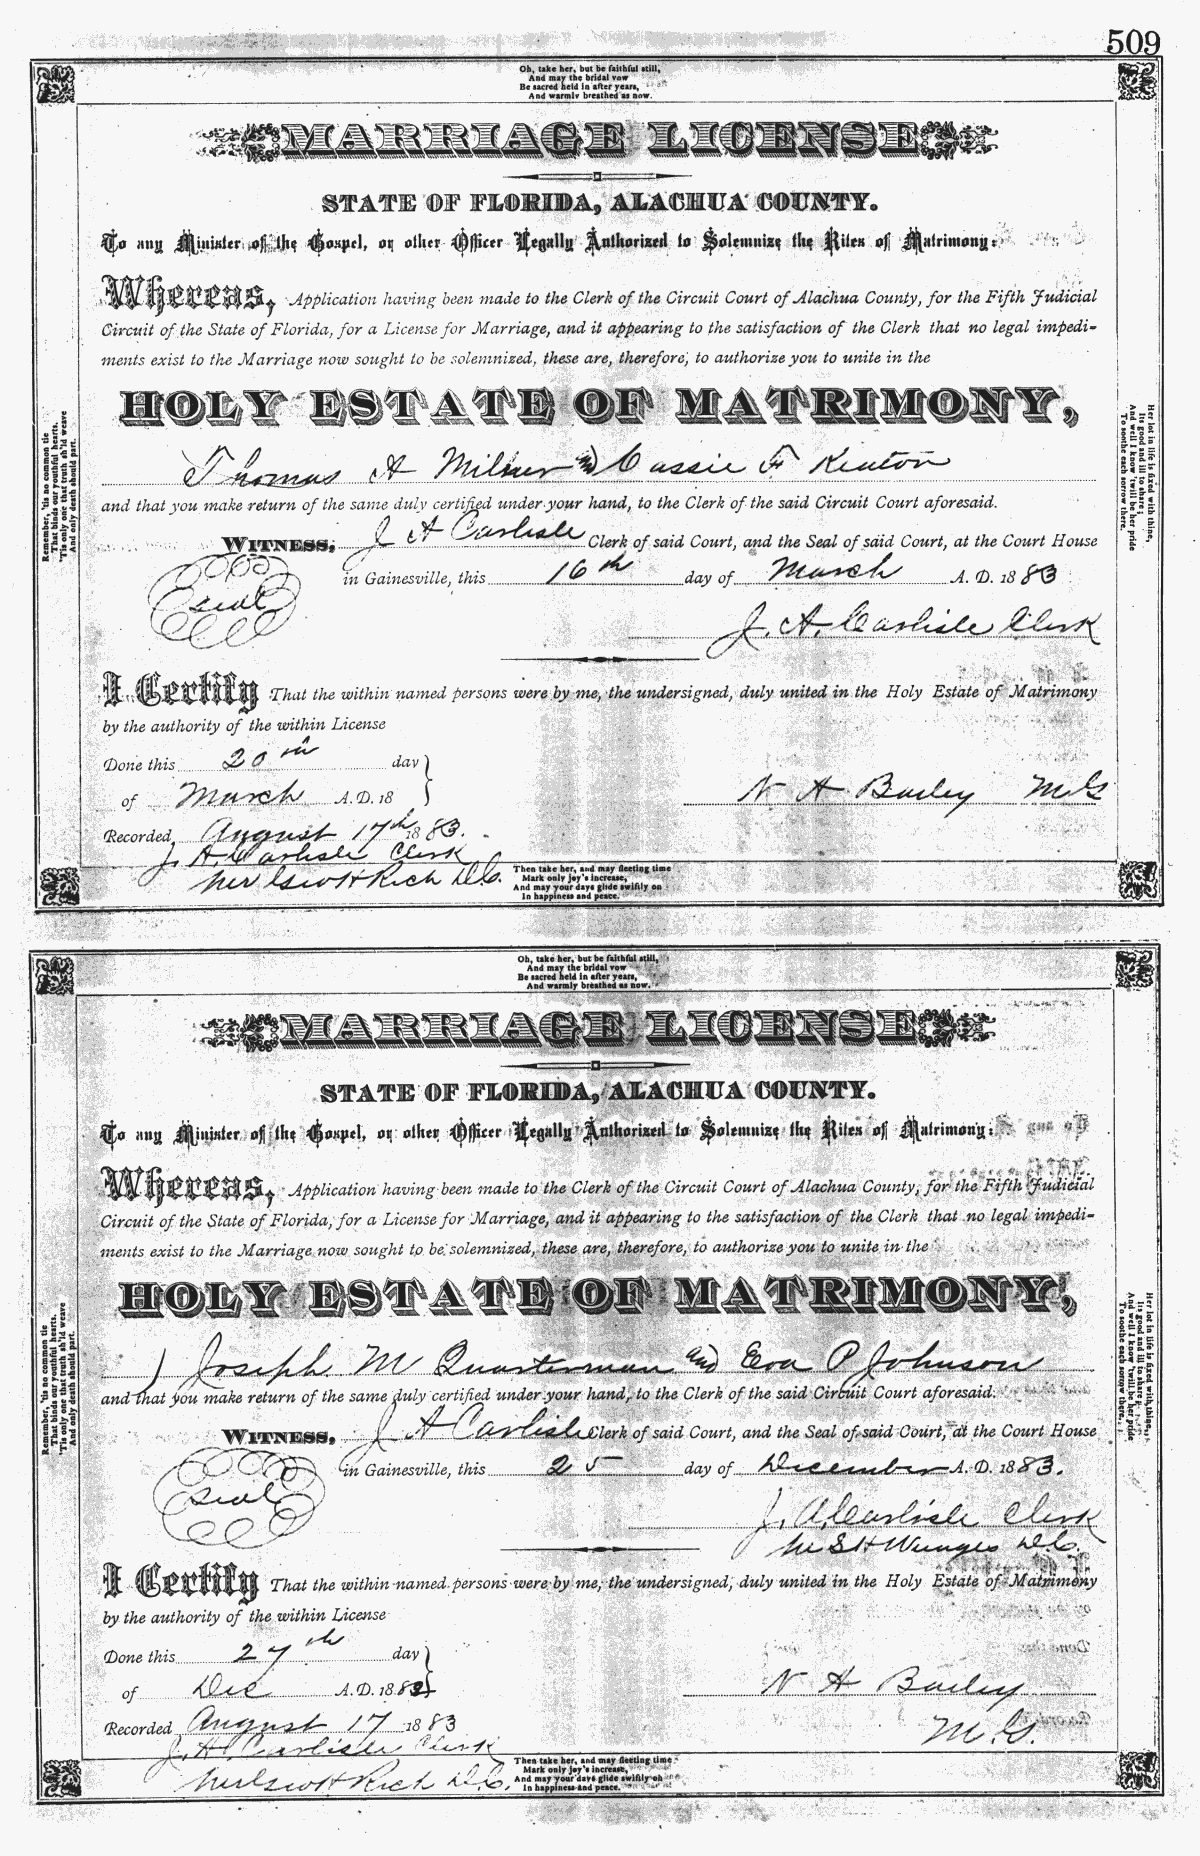 509
Oh, take her, but be faithful still,
And may the bridal vow
Be sacred held in after years,
And warmly breathed as now.
MARRIAGE LICENSE
STATE OF FLORIDA, ALACHUA COUNTY.
To any Minister of the Gospel, or other Officer Legally Authorized to Solemnize the Rites of Matrimony:
Whereas, Application having been made to the Clerk of the Circuit Court of Alachua County, for the Fifth Judicial
Circuit of the State of Florida, for a License for Marriage, and it appearing to the satisfaction of the Clerk that no legal impedi-
ments exist to the Marriage now sought to be solemnized, these are, therefore, to authorize you to unite in the
HOLY ESTATE OF MATRIMONY,
Thomas A Milner and Cassie F Keaton
and that you make return of the same duly certified under your hand, to the Clerk of the said Circuit Court aforesaid.
WITNESS, J A Carlisle Clerk of said Court, and the Seal of said Court, at the Court House
in Gainesville, this 16th day of March A. D. 1883
seal
J. A. Carlisle Clerk
I Certify That the within named persons were by me, the undersigned, duly united in the Holy Estate of Matrimony
by the authority of the within License
Done this 20th day
of March A.D. 18
N A Bailey M.G
Recorded August 17th 1883.
J. A. Carlisle Clerk
Per Geo H Rich D.C.
Remember, 'tis no common tie
That binds our youthful hearts,
'Tis only one that truth sh'ld weave
And only death should part.
Her lot in life is fixed with thine,
Its good and ill to share;
And well I know 'twill be her pride
To soothe each sorrow there.
Then take her, and may fleeting time
Mark only joy's increase,
And may your days glide swiftly on
In happiness and peace.
Oh, take her, but be faithful still,
And may the bridal vow
Be sacred held in after years,
And warmly breathed as now.
MARRIAGE LICENSE
STATE OF FLORIDA, ALACHUA COUNTY.
To any Minister of the Gospel, or other Officer Legally Authorized to Solemnize the Rites of Matrimony:
Whereas, Application having been made to the Clerk of the Circuit Court of Alachua County, for the Fifth Judicial
Circuit of the State of Florida, for a License for Marriage, and it appearing to the satisfaction of the Clerk that no legal impedi-
ments exist to the Marriage now sought to be solemnized, these are, therefore, to authorize you to unite in the
HOLY ESTATE OF MATRIMONY,
Joseph M Quarterman and Eva P Johnson
and that you make return of the same duly certified under your hand, to the Clerk of the said Circuit Court aforesaid.
WITNESS, J A Carlisle Clerk of said Court, and the Seal of said Court, at the Court House
in Gainesville, this 25 day of December A. D. 1883.
seal
J. A. Carlisle Clerk
D.C.
I Certify That the within named persons were by me, the undersigned, duly united in the Holy Estate of Matrimony
by the authority of the within License
Done this 27th day
of Dec A.D. 1882
N A Bailey
M.G.
Recorded August 17 1883
J. A. Carlisle Clerk
Per Geo H Rich D.C.
Remember, 'tis no common tie
That binds our youthful hearts,
'Tis only one that truth sh'ld weave
And only death should part.
Her lot in life is fixed with thine,
Its good and ill to share;
And well I know 'twill be her pride
To soothe each sorrow there.
Then take her, and may fleeting time
Mark only joy's increase,
And may your days glide swiftly on
In happiness and peace.